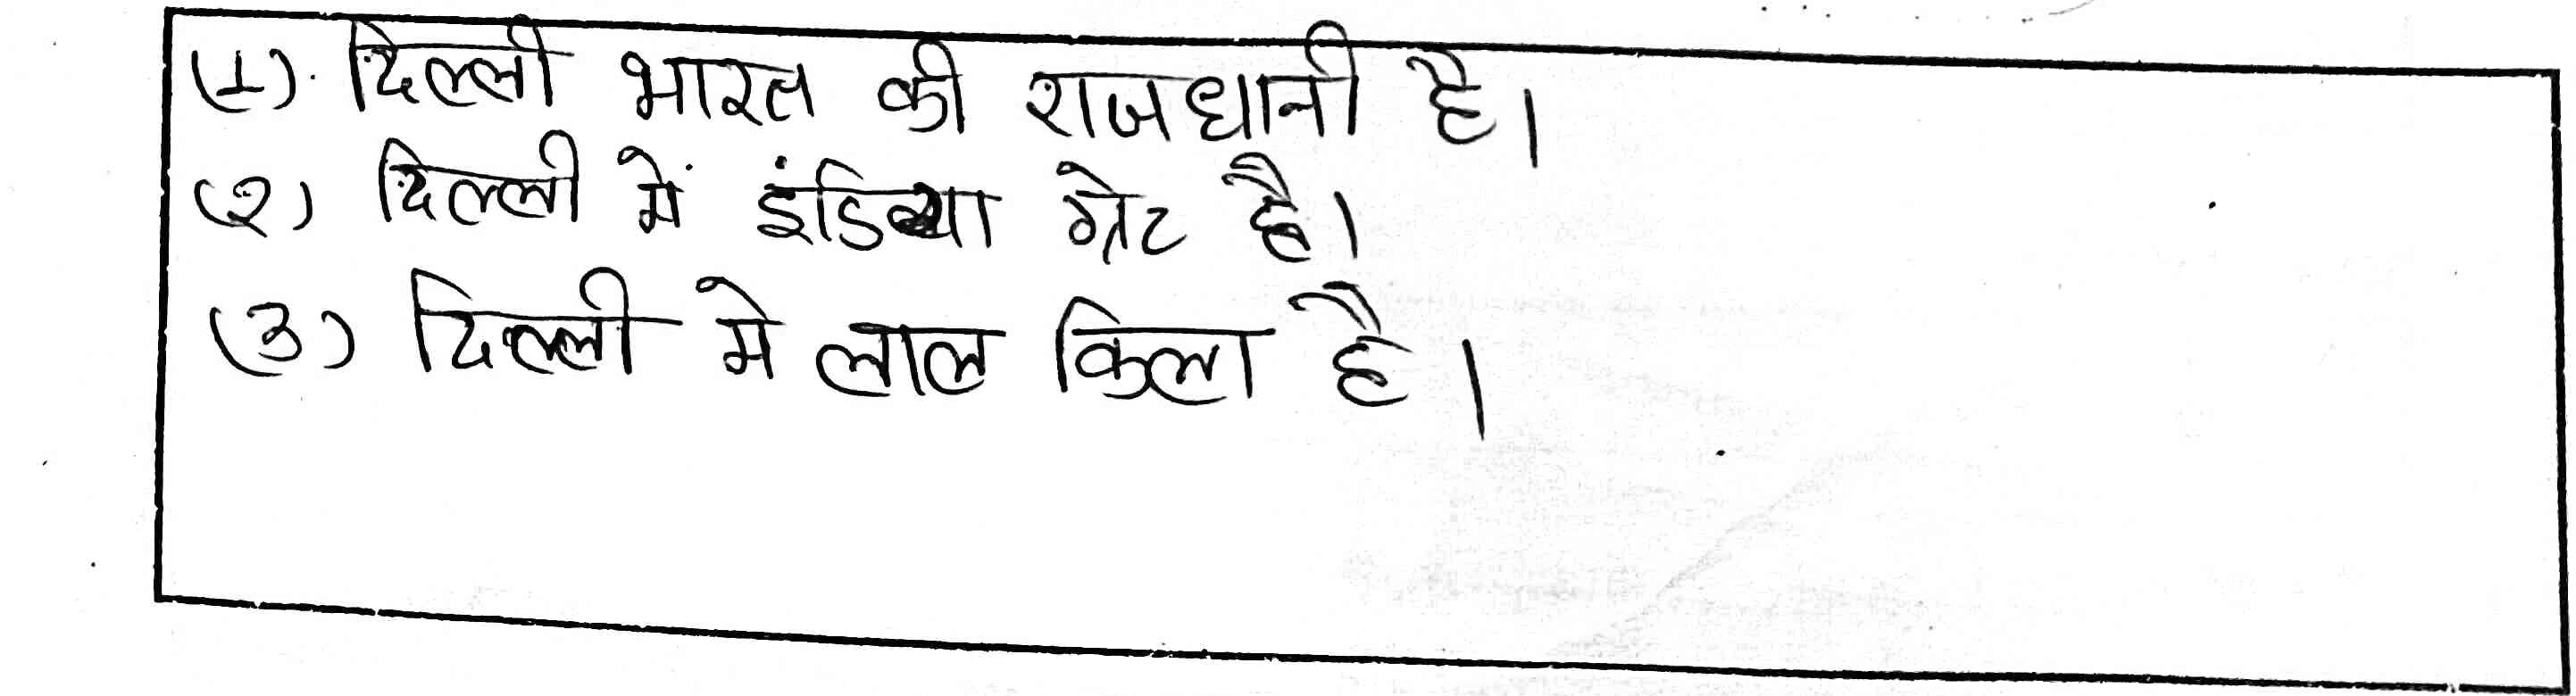 (1). दिल्ली भारत की राजधानी है।
(२) दिल्ली में इंडिया गेट है।
(३) दिल्ली मे लाल किला है।